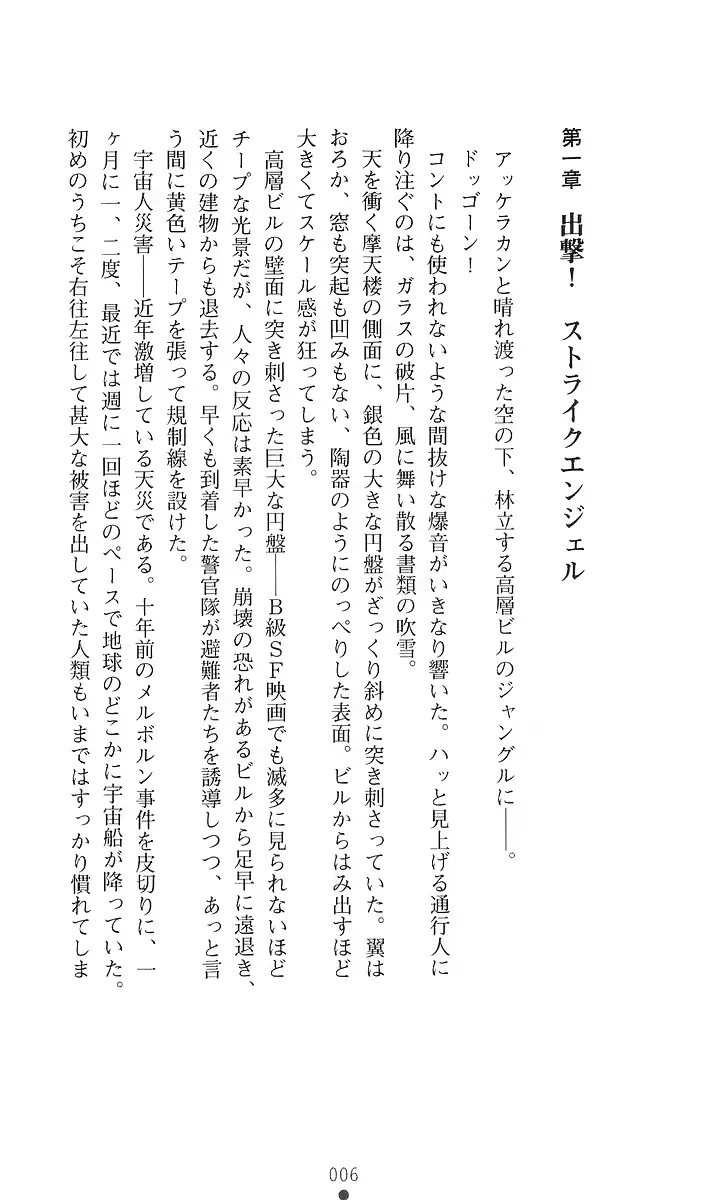 第一章　出撃！　ストライクエンジェル
アッケラカンと晴れ渡った空の下、林立する高層ビルのジャングルに――。
ドッゴーン！
コントにも使われないような間抜けな爆音がいきなり響いた。ハッと見上げる通行人に
降り注ぐのは、ガラスの破片、風に舞い散る書類の吹雪。
天を衝く摩天楼の側面に、銀色の大きな円盤がざっくり斜めに突き刺さっていた。翼は
おろか、窓も突起も凹みもない、陶器のようにのっぺりした表面。ビルからはみ出すほど
大きくてスケール感が狂ってしまう。
高層ビルの壁面に突き刺さった巨大な円盤――Ｂ級ＳＦ映画でも滅多に見られないほど
チープな光景だが、人々の反応は素早かった。崩壊の恐れがあるビルから足早に遠退き、
近くの建物からも退去する。早くも到着した警官隊が避難者たちを誘導しつつ、あっと言
う間に黄色いテープを張って規制線を設けた。
宇宙人災害――近年激増している天災である。十年前のメルボルン事件を皮切りに、一
ヶ月に一、二度、最近では週に一回ほどのペースで地球のどこかに宇宙船が降っていた。
初めのうちこそ右往左往して甚大な被害を出していた人類もいまではすっかり慣れてしま
006